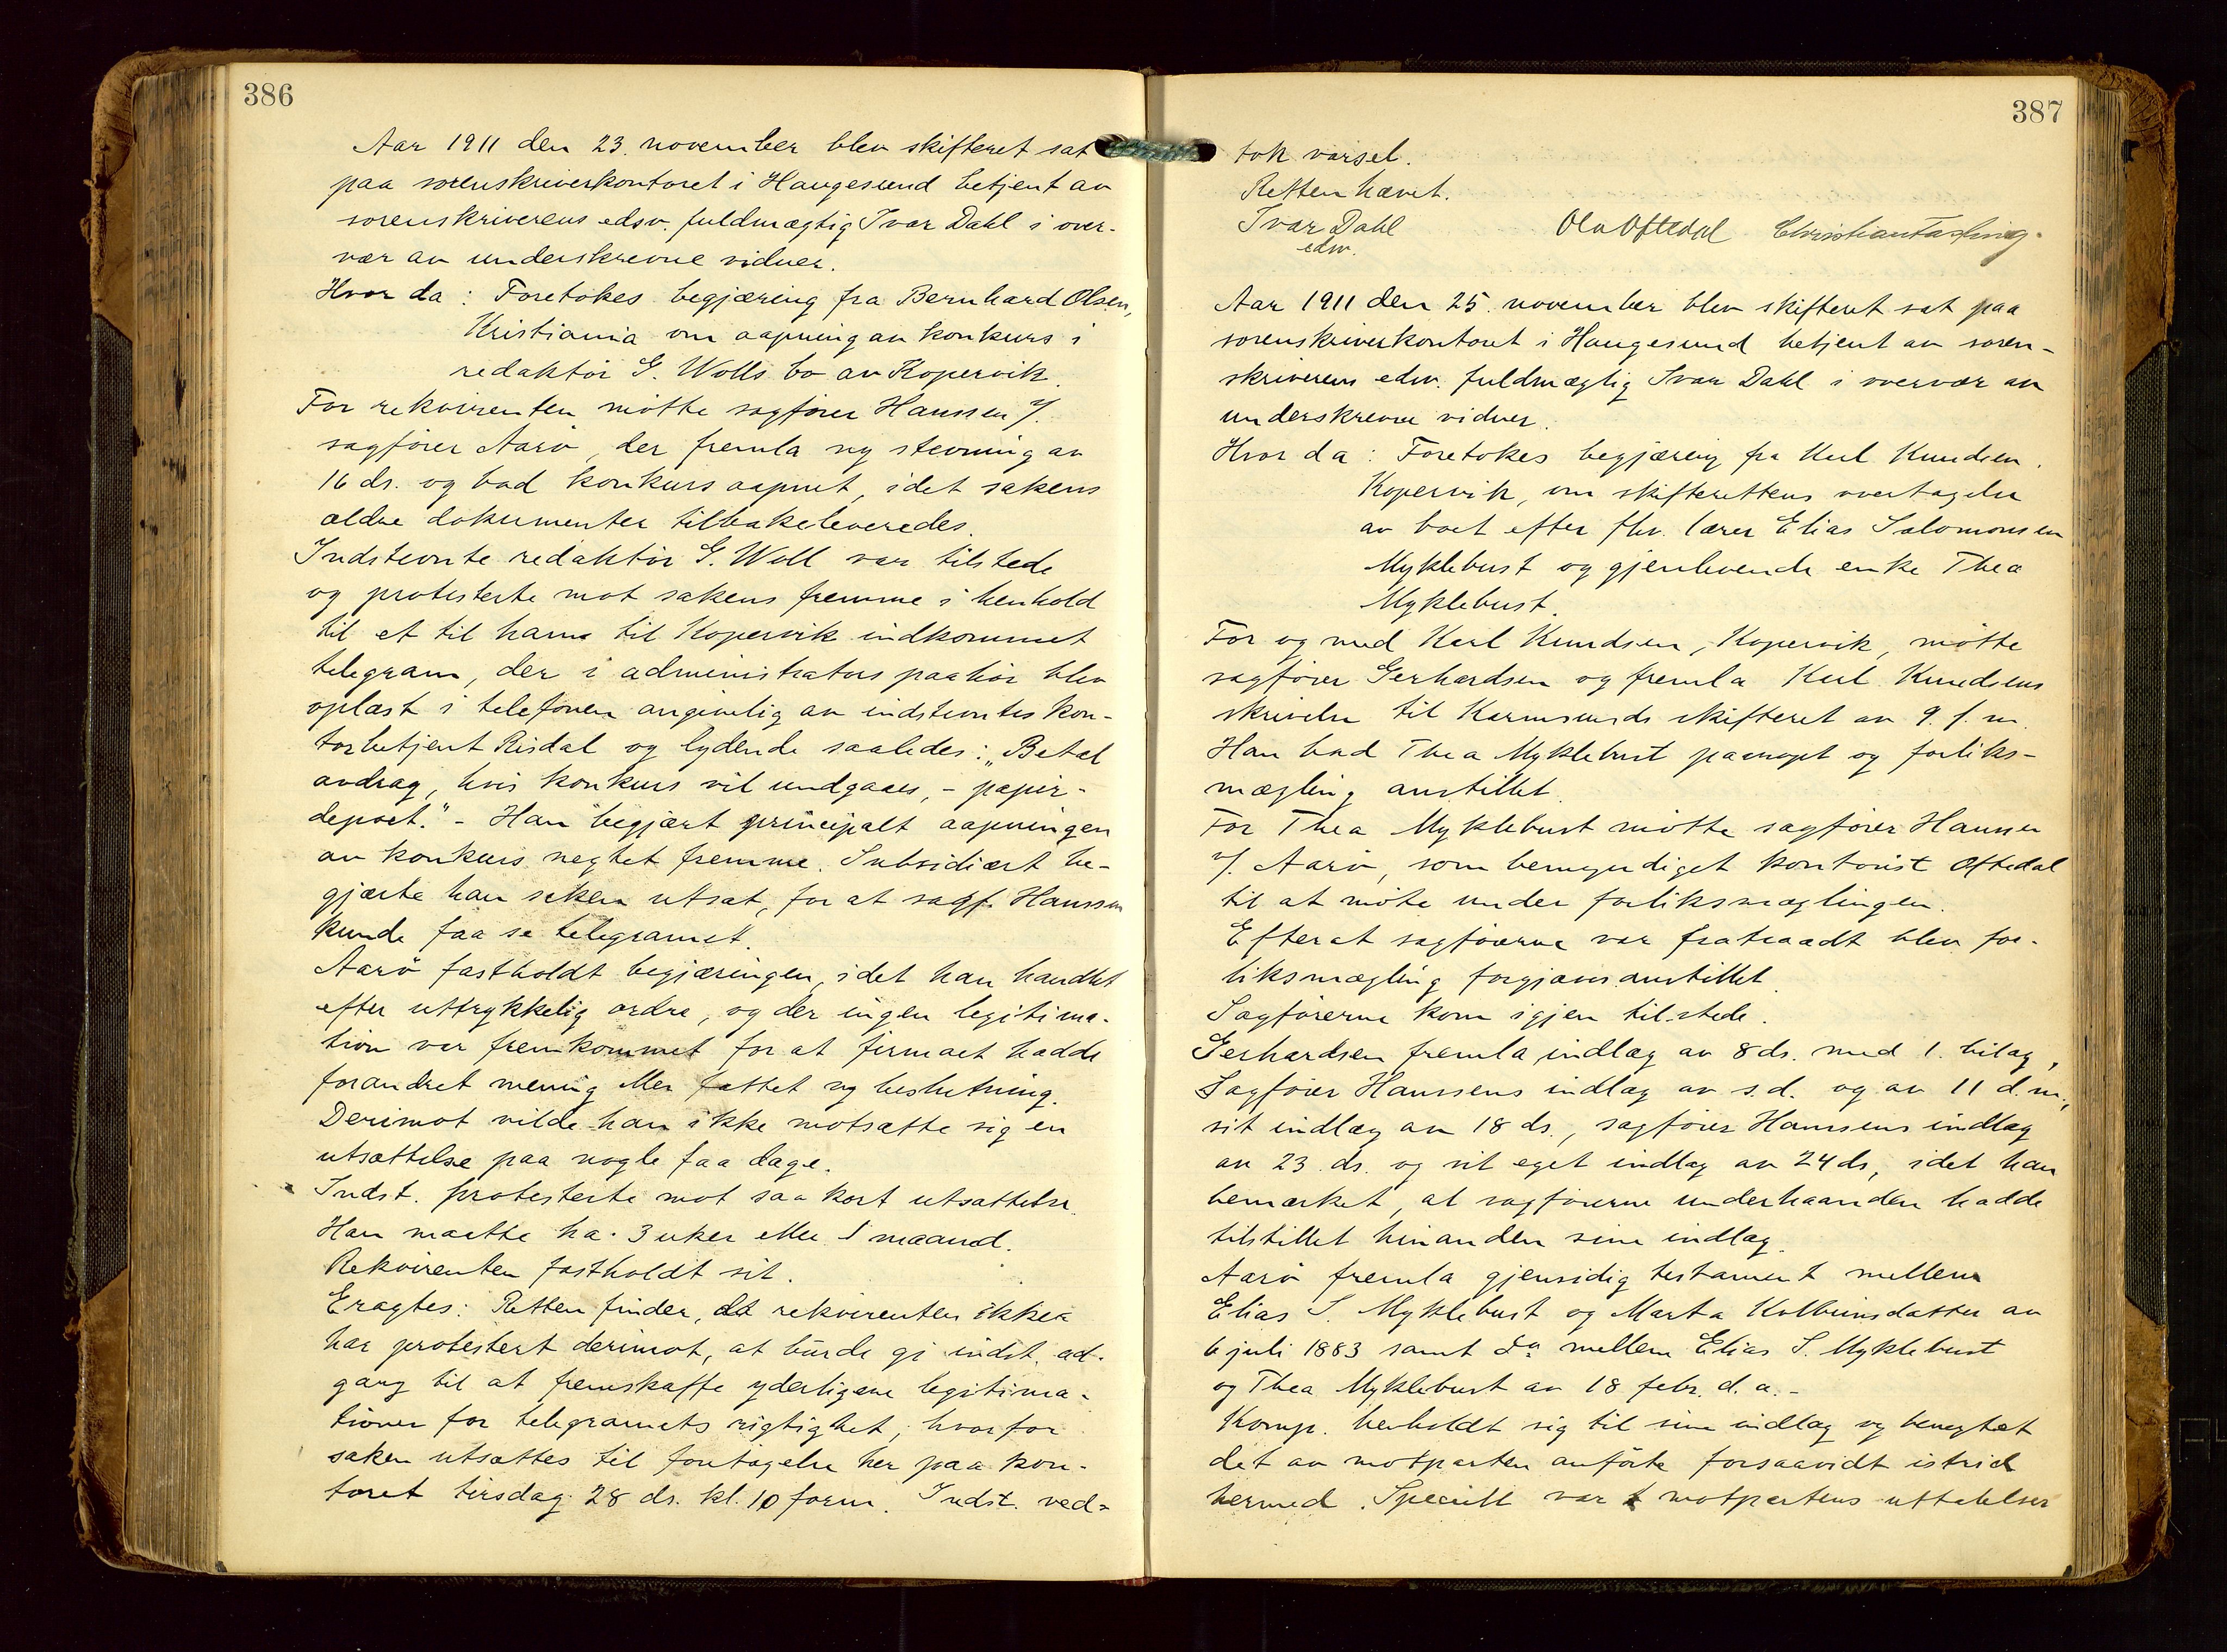 386
Aar 1911 den 23. november blev skifteret sat
paa sorenskriverkontoret i Haugesund betjent av
sorenskriverens edsv. fuldmægtig Ivar Dahl i over-
vær av underskrevne vidner.
Hvor da: Foretokes begjæring fra Bernhard Olsen,
Kristiania om aapning av konkurs i
redaktør G. Wolls bo av Kopervik.
For rekvirenten møtte sagfører Hanssen v/.
sagfører Aarø, der fremla ny stevning av
16 ds. og bad konkurs aapnet, idet sakens
ældre dokumenter tilbakeleveredes.
Indstevnte redaktør G. Woll var tilstede
og protesterte mot sakens fremme i henhold
til et til ham til Kopervik indkommet
telegram, der i administrators paahør blev
oplæst i telefonen angivelig av indstevntes kon-
torbetjent Risdal og lydende saaledes: "Betal
avdrag, hvis konkurs vil undgaaes, - papir-
depoet." - Han begjært principalt aapningen
av konkurs negtet fremme. Subsidiært be-
gjærte han saken utsat, for at sagf. Hanssen
kunde faa se telegramet.
Aarø fastholdt begjæringen, idet han handlet
efter uttrykkelig ordre, og der ingen legitima-
tion var fremkommet for at firmaet hadde
forandret mening eller fattet ny beslutning.
Derimot vilde han ikke motsætte sig en
utsættelse paa nogle faa dage.
Indst. protesterte mot saa kort utsættelse.
Han maatte ha. 3 uker eller 1 maaned.
Rekvirenten fastholdt sit.
Eragtes: Retten finder, da rekvirenten ikke
har protestert derimot, at burde gi indst. ad-
gang til at fremskaffe yderligere legitima-
tioner for telegramets rigtighet, hvorfor
saken utsættes til foretagelse her paa kon-
toret tirsdag 28 ds. kl. 10 form. Indst. ved-
387
tok varsel.
Retten hævet.
Ivar Dahl
edsv.
Ola Oftedal Christian
Aar 1911 den 25. november blev skifteret sat paa
sorenskriverkontoret i Haugesund betjent av soren-
skriverens edsv. fuldmægtig Ivar Dahl i overvær av
underskrevne vidner.
Hvor da: Foretokes begjæring fra Karl Knudsen,
Kopervik, om skifterettens overtagelse
av boet efter fhv. lærer Elias Salomonsen
Myklebust og gjenlevende enke Thea
Myklebust.
For og med Karl Knudsen, Kopervik, møtte
sagfører Gerhardsen og fremla Karl Knudsens
skrivelse til Karmsunds skifteret av 9. f. m.
Han bad Thea Myklebust paaropt og forliks-
mægling anstillet.
For Thea Myklebust møtte sagfører Hanssen
v/. Aarø, som bemyndiget kontorist Oftedal
til at møte under forliksmæglingen.
Efterat sagførerne var fratraadt blev for-
liksmægling forgjæves anstillet.
Sagførerne kom igjen tilstede.
Gerhardsen fremla indlæg av 8 ds. med 1. bilag,
Sagfører Hanssens indlæg av s.d. og av 11 d.m.,
sit indlæg av 18 ds., sagfører Hanssens indlæg
av 23. ds. og sit eget indlæg av 24 ds, idet han
bemærket, at sagførerne underhaanden hadde
tilstillet hinanden sine indlæg.
Aarø fremla gjensidig testament mellem
Elias S. Myklebust og Marta Kolbeinsdatter av
6 juli 1883 samt do mellem Elias S. Myklebust
og Thea Myklebust av 18 febr. d. a. -
Komp. henholdt sig til sine indlæg og benegtet
det av motparten anførte forsaavidt i strid
hermed. Specielt var motpartens uttalelser